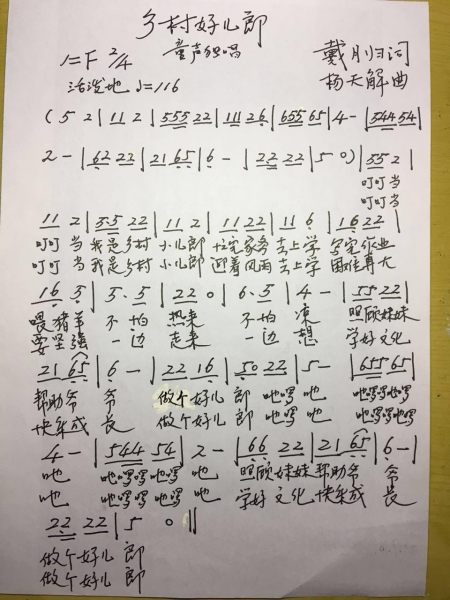 乡村好儿郎
童声独唱
1=F 2/4
戴月归词
活泼地 ♩=116
杨天解曲
(5 2|11 2|555 22|111 26|655 65|4-|544 54|
2-|62 22|21 65|6-|22 22|5 0)|55 2|
叮叮当
叮叮当
11 2|55 22|11 2|11 22|11 6|16 22|
叮叮 当 我是乡村 小儿郎 去上学
叮叮 当 我是乡村 小儿郎 迎着风雨 去上学 困难再大
16 5|5·5|22 0|6·5|4-|55 22|
喂猪羊 不怕 热来 不怕 凉 照顾妹妹
要坚强 一边 走来 一边 想 学好文化
21 65|6-|22 16|50 22|5-|655 65|
帮助爷 爷 做个好儿 郎 吔啰 吔 吔啰啰吔啰
快成 长 做个好儿 郎 吔啰 吔 吔啰啰吔啰
4-|544 54|2-|66 22|21 65|6-|
吔 吔啰啰吔啰 吔 照顾妹妹 帮助爷 爷
吔 吔啰啰吔啰 吔 学好文化 快成 长
22 22|5 0‖
做个好儿 郎
做个好儿 郎